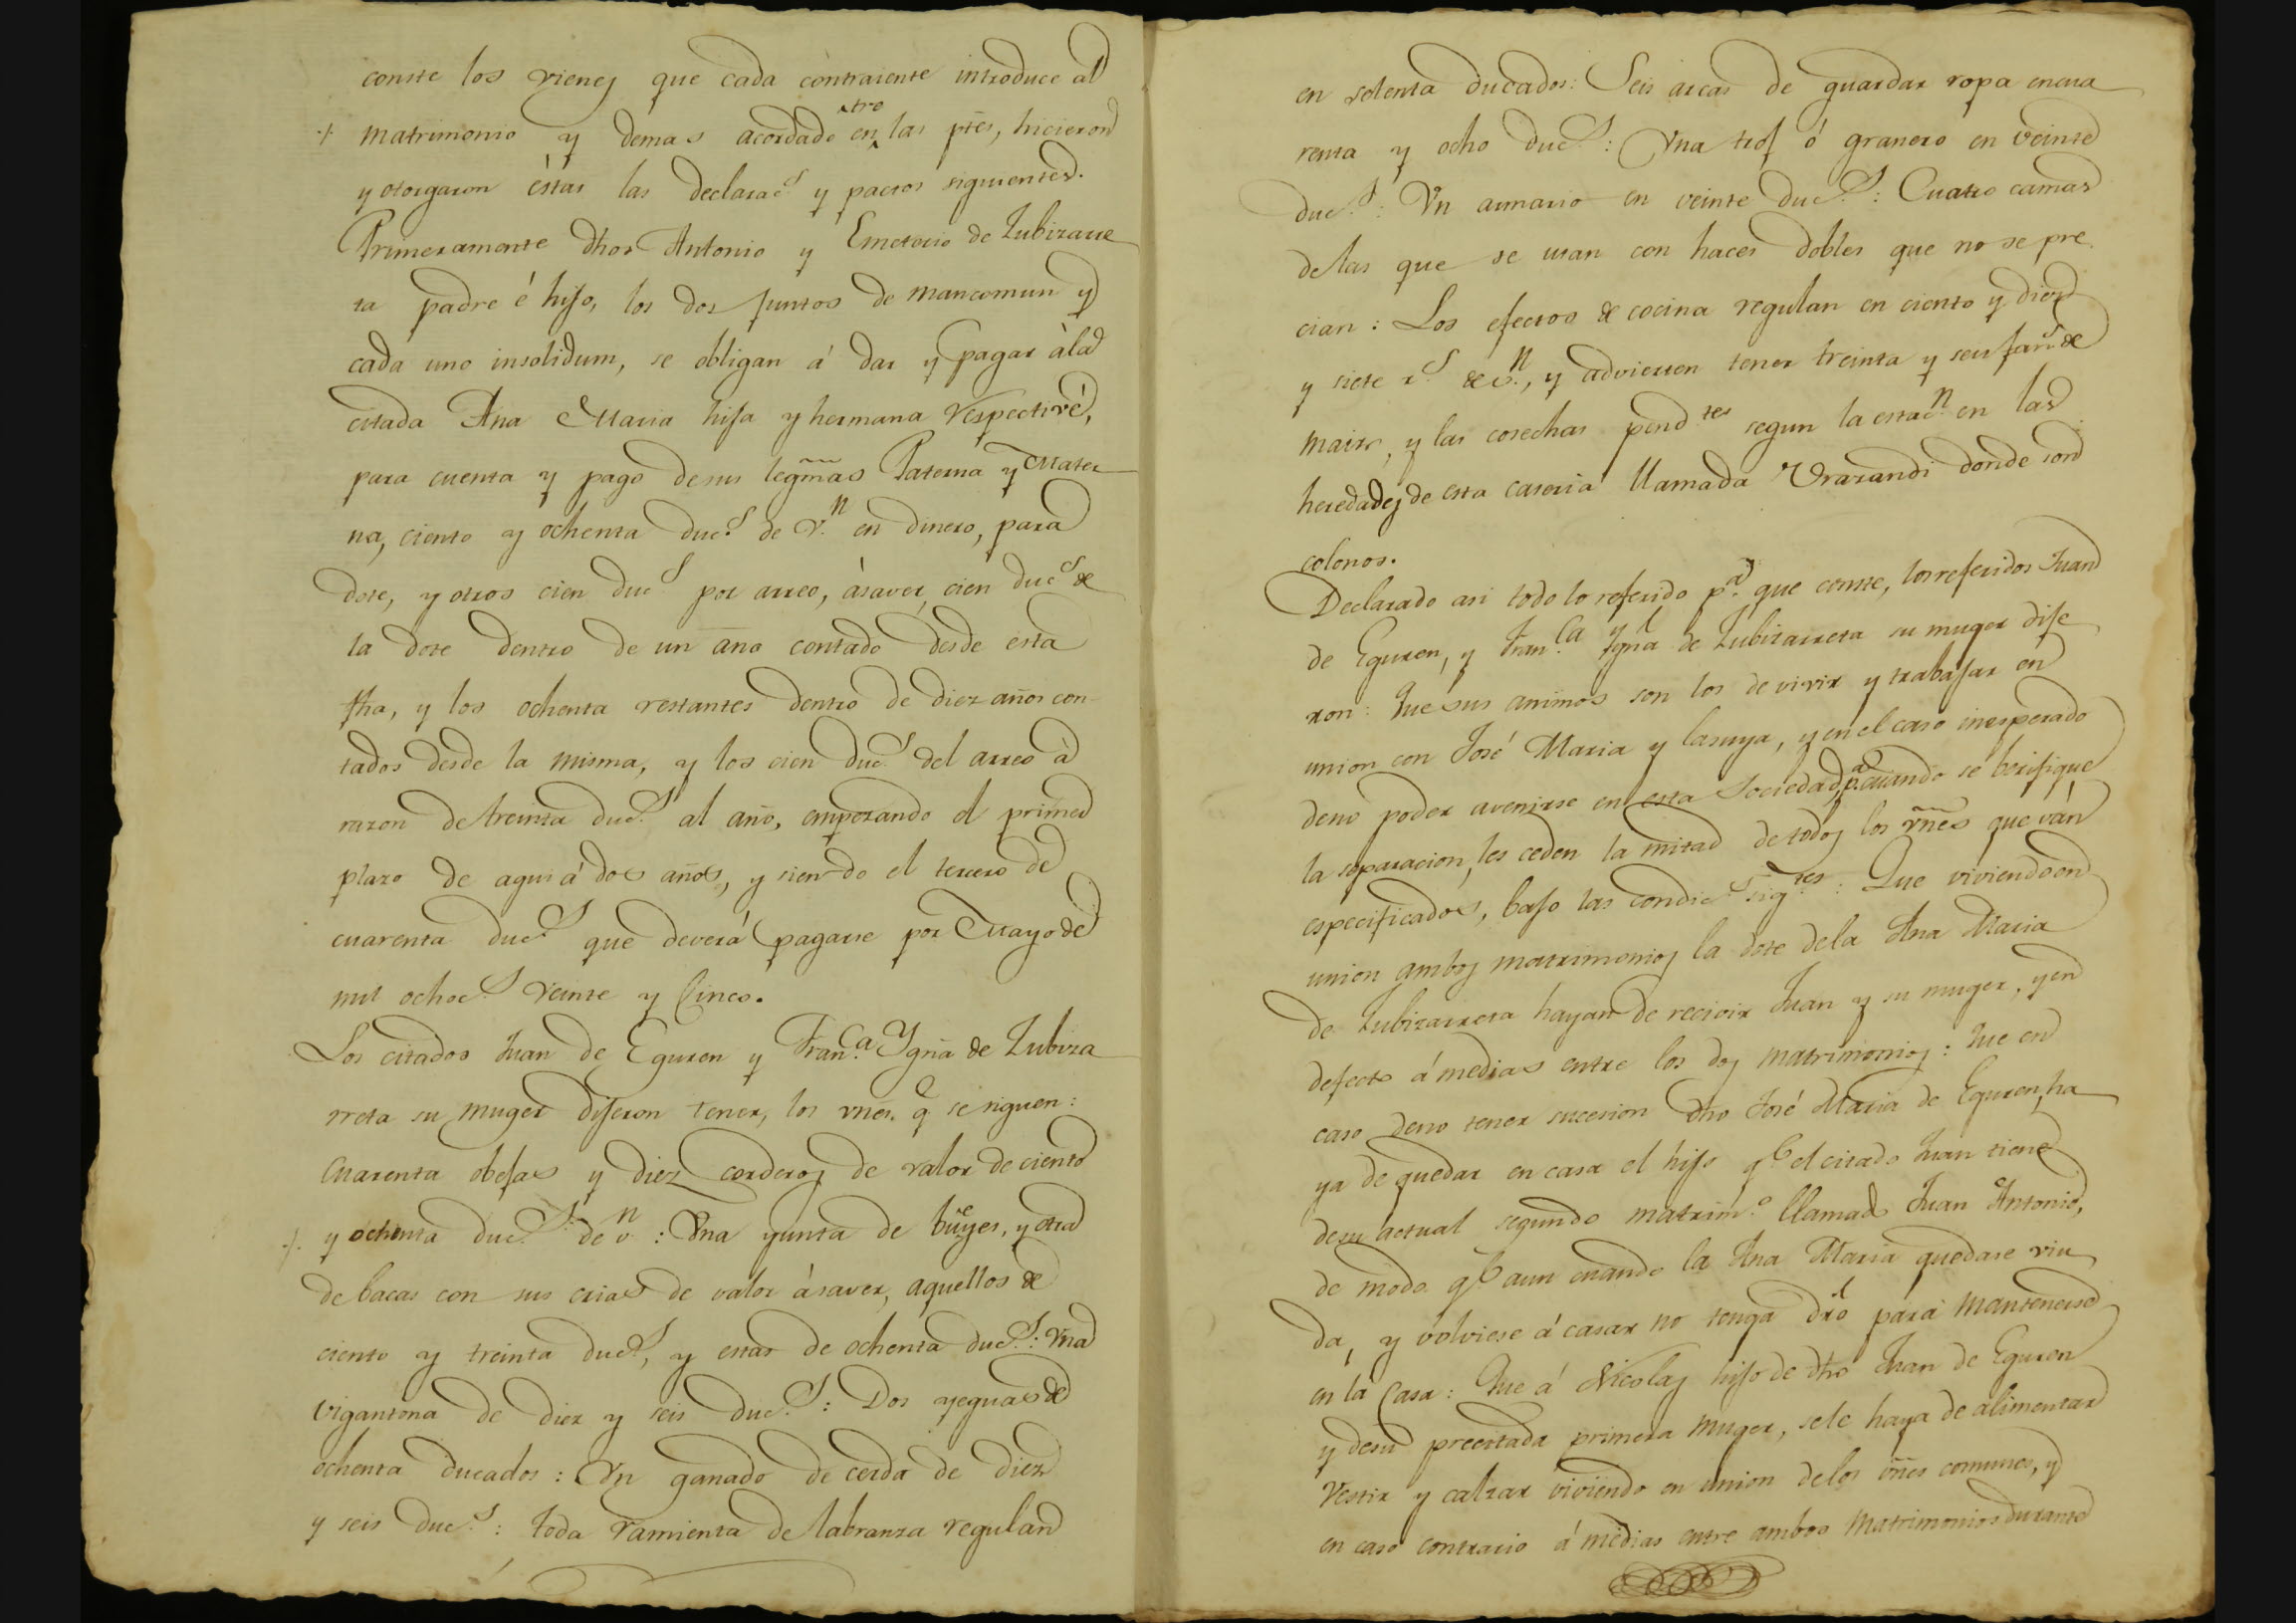 conste los vienes que cada contraiente introduce al
matrimonio y demas acordado entro las ptes, hicieron
y otorgaron éstas las declaracs y pactos siguientes.
Primeramente dhos Antonio y Emeterio de Zubizarre
ta padre é hijo, los dos juntos de mancomun y
cada uno insolidum, se obligan á dar y pagar á la
citada Ana Maria hija y hermana respectivé,
para cuenta y pago de sus legmas Paterna y Mater
na, ciento y ochenta ducs de Vn en dinero, para
dote, y otros cien ducs por arreo, ásaver, cien ducs de
la dote dentro de un año contado desde esta
fha, y los ochenta restantes dentro de diez años con
tados desde la misma, y los cien ducs del arreo à
razon de treinta ducs al año, empezando el primer
plazo de aqui á dos años, y siendo el tercero de
cuarenta ducs que deverá pagarse por Mayo de
mil ochocs veinte y Cinco.
Los citados Juan de Eguren y Franca Ygna de Zubiza
rreta su muger dijeron tener, los vnes. q se siguen:
Cuarenta obejas y diez corderos de valor de ciento
y ochenta ducs de vn: Una yunta de bueyes, y otra
de bacas con sus crias de valor ásaver, aquellos de
ciento y treinta ducs, y estas de ochenta ducs: Una
vigantona de diez y seis ducs: Dos yeguas de
ochenta ducados: Un ganado de cerda de diez
y seis ducs: toda ramienta de labranza regulan
en setenta ducados: Seis arcas de guardar ropa en cua
renta y ocho ducs: Una troj ó granero en veinte
ducs: Un armario en veinte ducs: Cuatro camas
de las que se usan con haces dobles que no se pre
cian: Los efectos de cocina regulan en ciento y diez
y siete rs de vn, y advierten tener treinta y seis fans de
maiz, y las cosechas pendtes segun la estacn en las
heredades de esta caseria llamada Urarandi donde son
colonos.
Declarado asi todo lo referido pa que conste, los referidos Juan
de Eguren, y Franca Ygna de Zubizarreta su muger dije
ron: Que sus animos son los de vivir y trabajar en
union con José Maria y la suya, y en el caso inesperado
de no poder avenirse en esta sociedad, pa cuando se berifique
la separacion, les ceden la mitad de todos los vnes que ván
especificados, bajo las condics sigtes: Que viviendo en
union ambos matrimonios la dote de la Ana Maria
de Zubizarreta hayan de recivir Juan y su muger, y en
defecto á medias entre los dos matrimonios: Que en
caso de no tener sucesion dho José Maria de Eguren, ha
ya de quedar en casa el hijo qe el citado Juan tiene
de su actual segundo matrimo llamado Juan Antonio,
de modo qe aun cuando la Ana Maria quedase viu
da, y volviese á casar no tenga dro para mantenerse
en la Casa: Que á Nicolas hijo de dho Juan de Eguren
y de su precitada primera muger, se le haya de alimentar
Vestir y calzar viviendo en union de los vnes comunes, y
en caso contrario á medias entre ambos Matrimonios durante